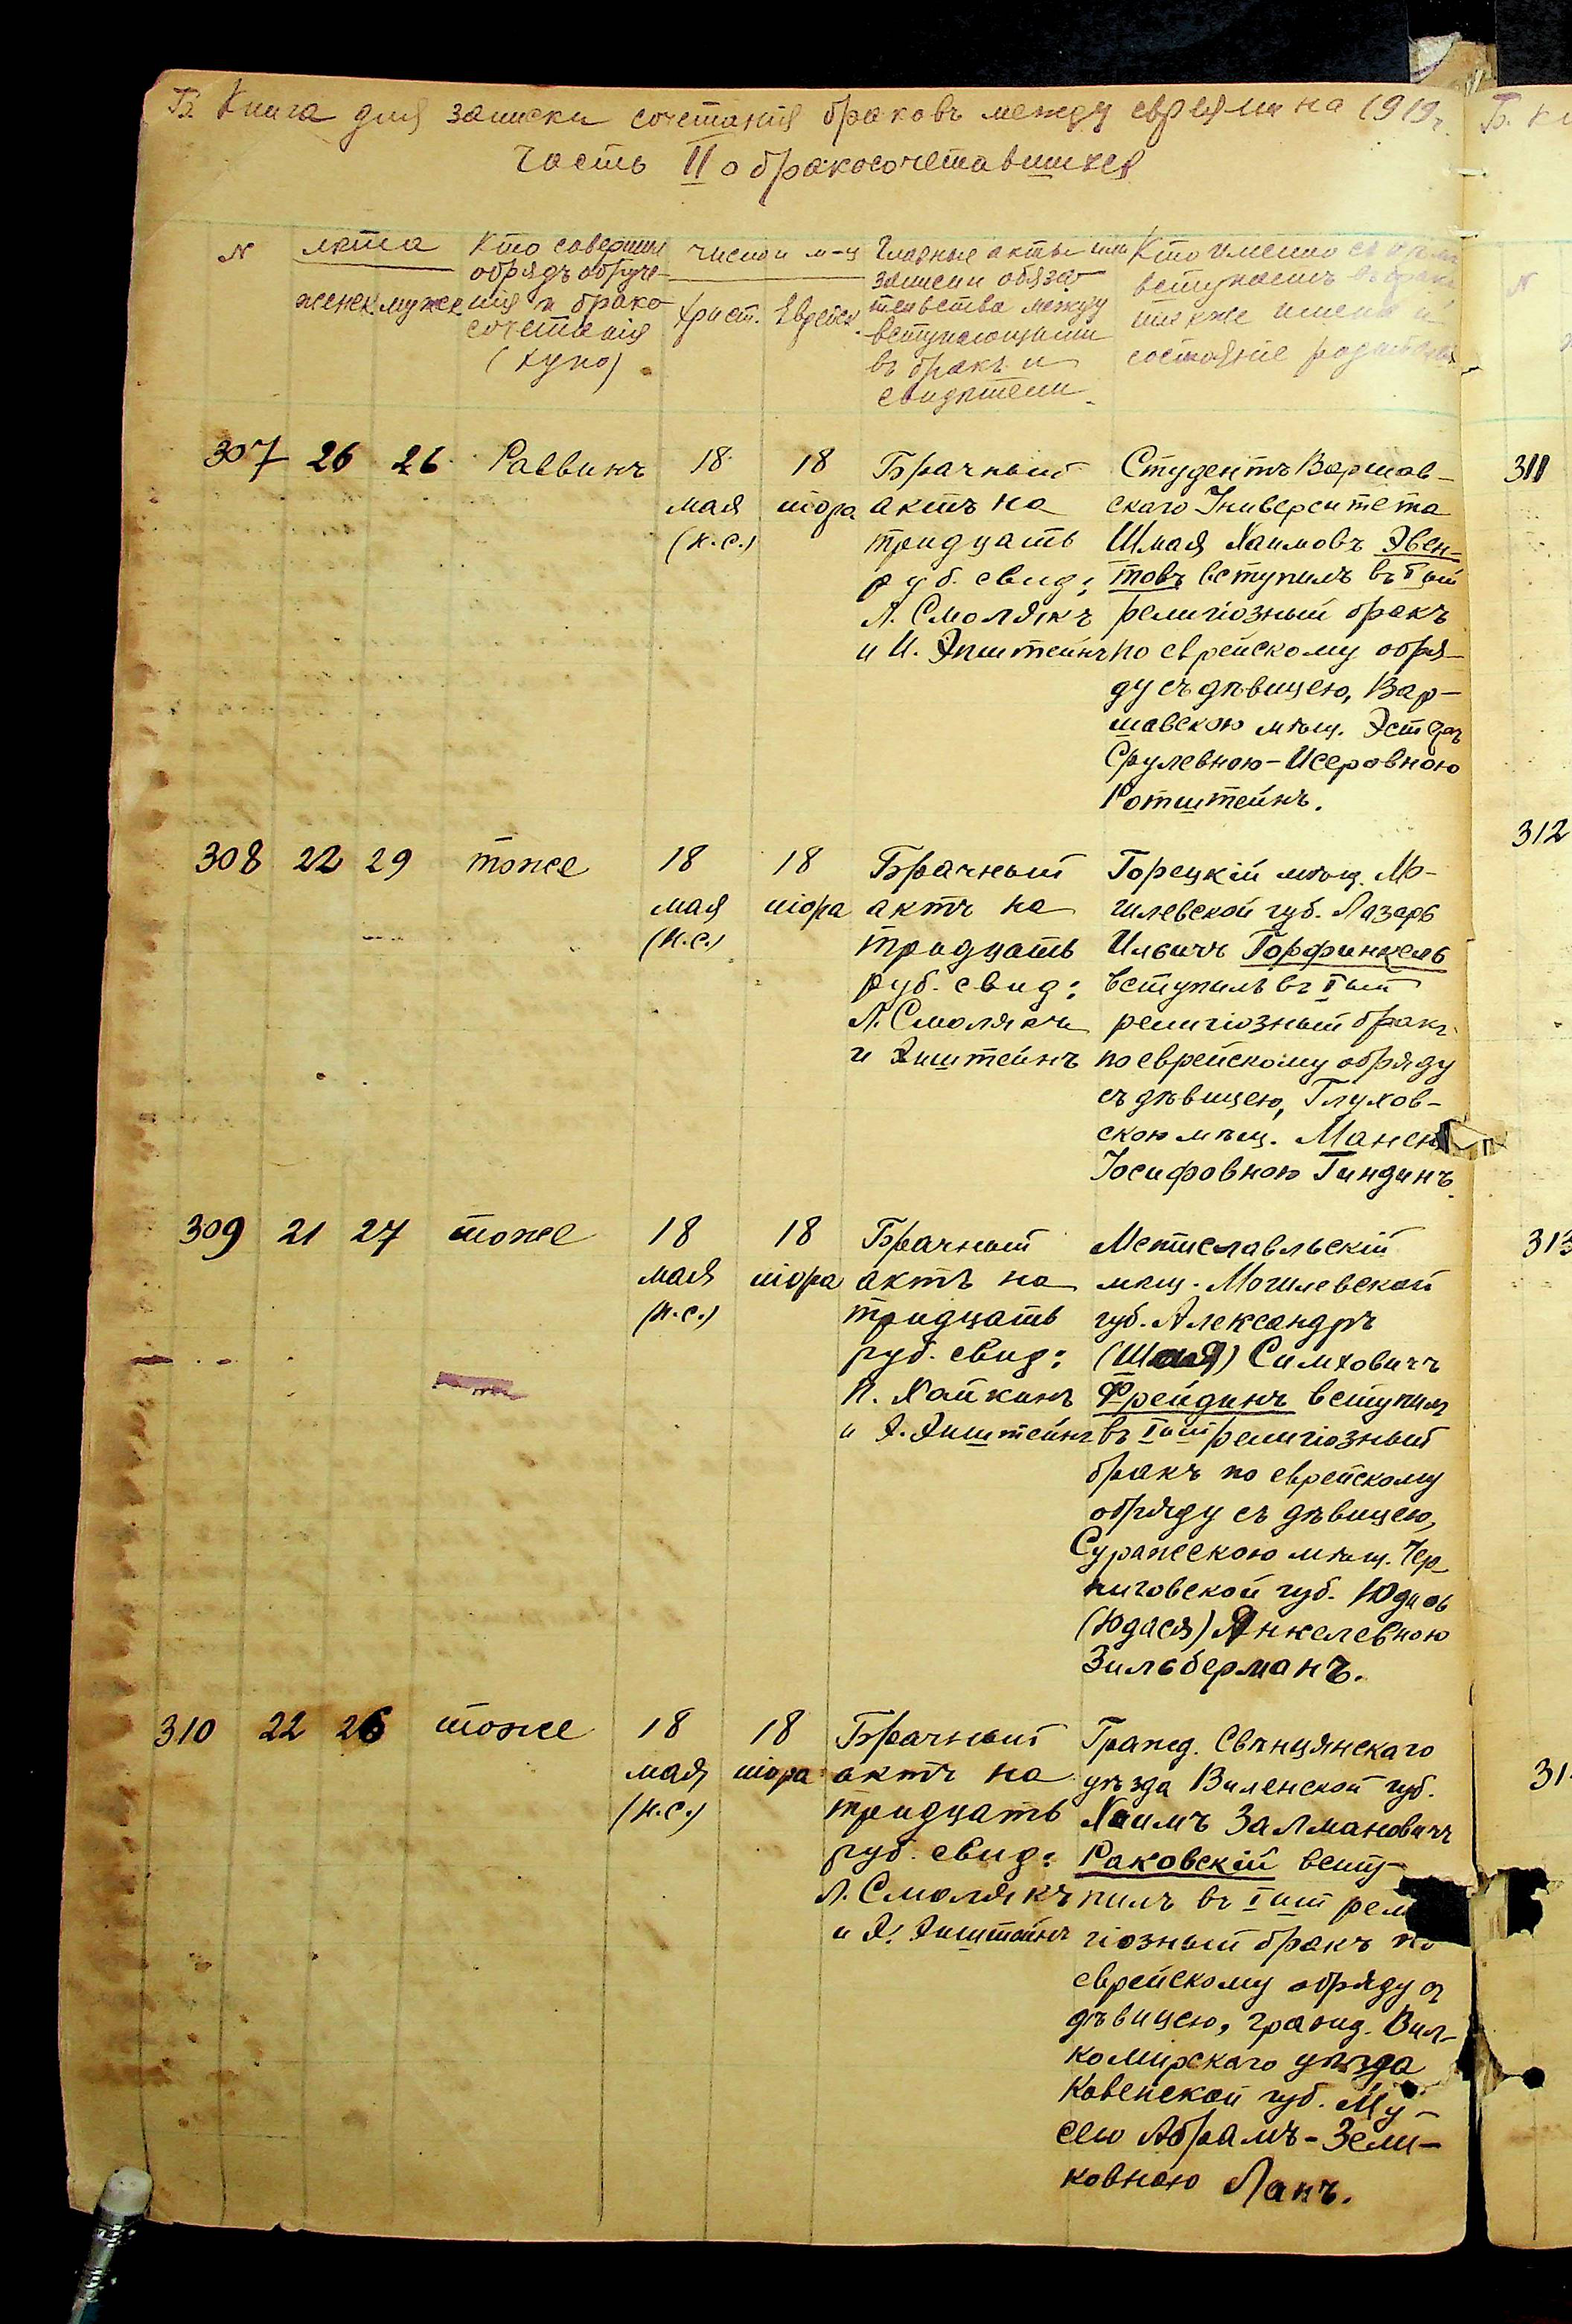 Б. Книга для записки сочетанія браковъ между евреями на 1919 г.
Часть II о бракосочетавшихся
N
лѣта
женск. мужск.
Кто совершил
обрядъ обруче-
нія и брако-
сочетанія
(хупо)
число и м-ц
Христ. Еврейск.
Главные акты или
записи обяза-
тельства между
вступающими
въ бракъ и
свидѣтели.
Кто именно съ кѣмъ
вступаетъ въ бракъ,
также имена и
состояніе родителей
307 26 26 Раввинъ
18
мая
(н.с.)
18
Іюра
Брачный
актъ на
тридцать
руб. свид:
Л. Смолякъ
и И. Эпштейнъ
Студентъ Варшав-
скаго Университета
Шмая Хаимовъ Эвен-
товъ вступилъ въ Iый
религіозный бракъ
по еврейскому обря-
ду съ дѣвицею, Вар-
шавскою мѣщ. Эстерѣ
Срулевною-Исеровною
Ротштейнъ.
308 22 29 тоже
18
мая
(н.с.)
18
іюра
Брачный
актъ на
тридцать
руб. свид:
Л. Смолякъ
и Эпштейнъ
Горецкій мѣщ. Мо-
гилевской губ. Лазарь
Ильичъ Горфинкель
вступилъ въ Iый
религіозный бракъ
по еврейскому обряду
съ дѣвицею, Глухов-
скою мѣщ.
Іосифовною Гиндинъ.
309 21 27 тоже
18
мая
(н.с.)
18
іюра
Брачный
актъ на
тридцать
руб. свид:
Хайкинъ
и Э. Эпштейнъ
Мстиславльскій
мѣщ. Могилевской
губ. Александръ
Симховичъ
Фрейдинъ вступилъ
въ Iый религіозный
бракъ по еврейскому
обряду съ дѣвицею,
Суражскою мѣщ. Чер-
ниговской губ. Юдиѳь
(Юдася) Янкелевною
Зильберманъ.
310 22 26 тоже
18
мая
(н.с.)
18
іюра
Брачный
актъ на
тридцать
руб. свид:
Л. Смолякъ
и Э. Эпштейнъ
Гражд. Свѣнцянскаго
уѣзда Виленской губ.
Хаимъ Залмановичъ
Раковскій всту-
пилъ въ Iый рели
гіозный бракъ по
еврейскому обряду съ
дѣвицею, гражд. Вил-
комирскаго уѣзда
Ковенской губ. Му-
сею Абрамъ-Зели-
ковною Лакъ.
Б. Кн
N
311
312
313
31